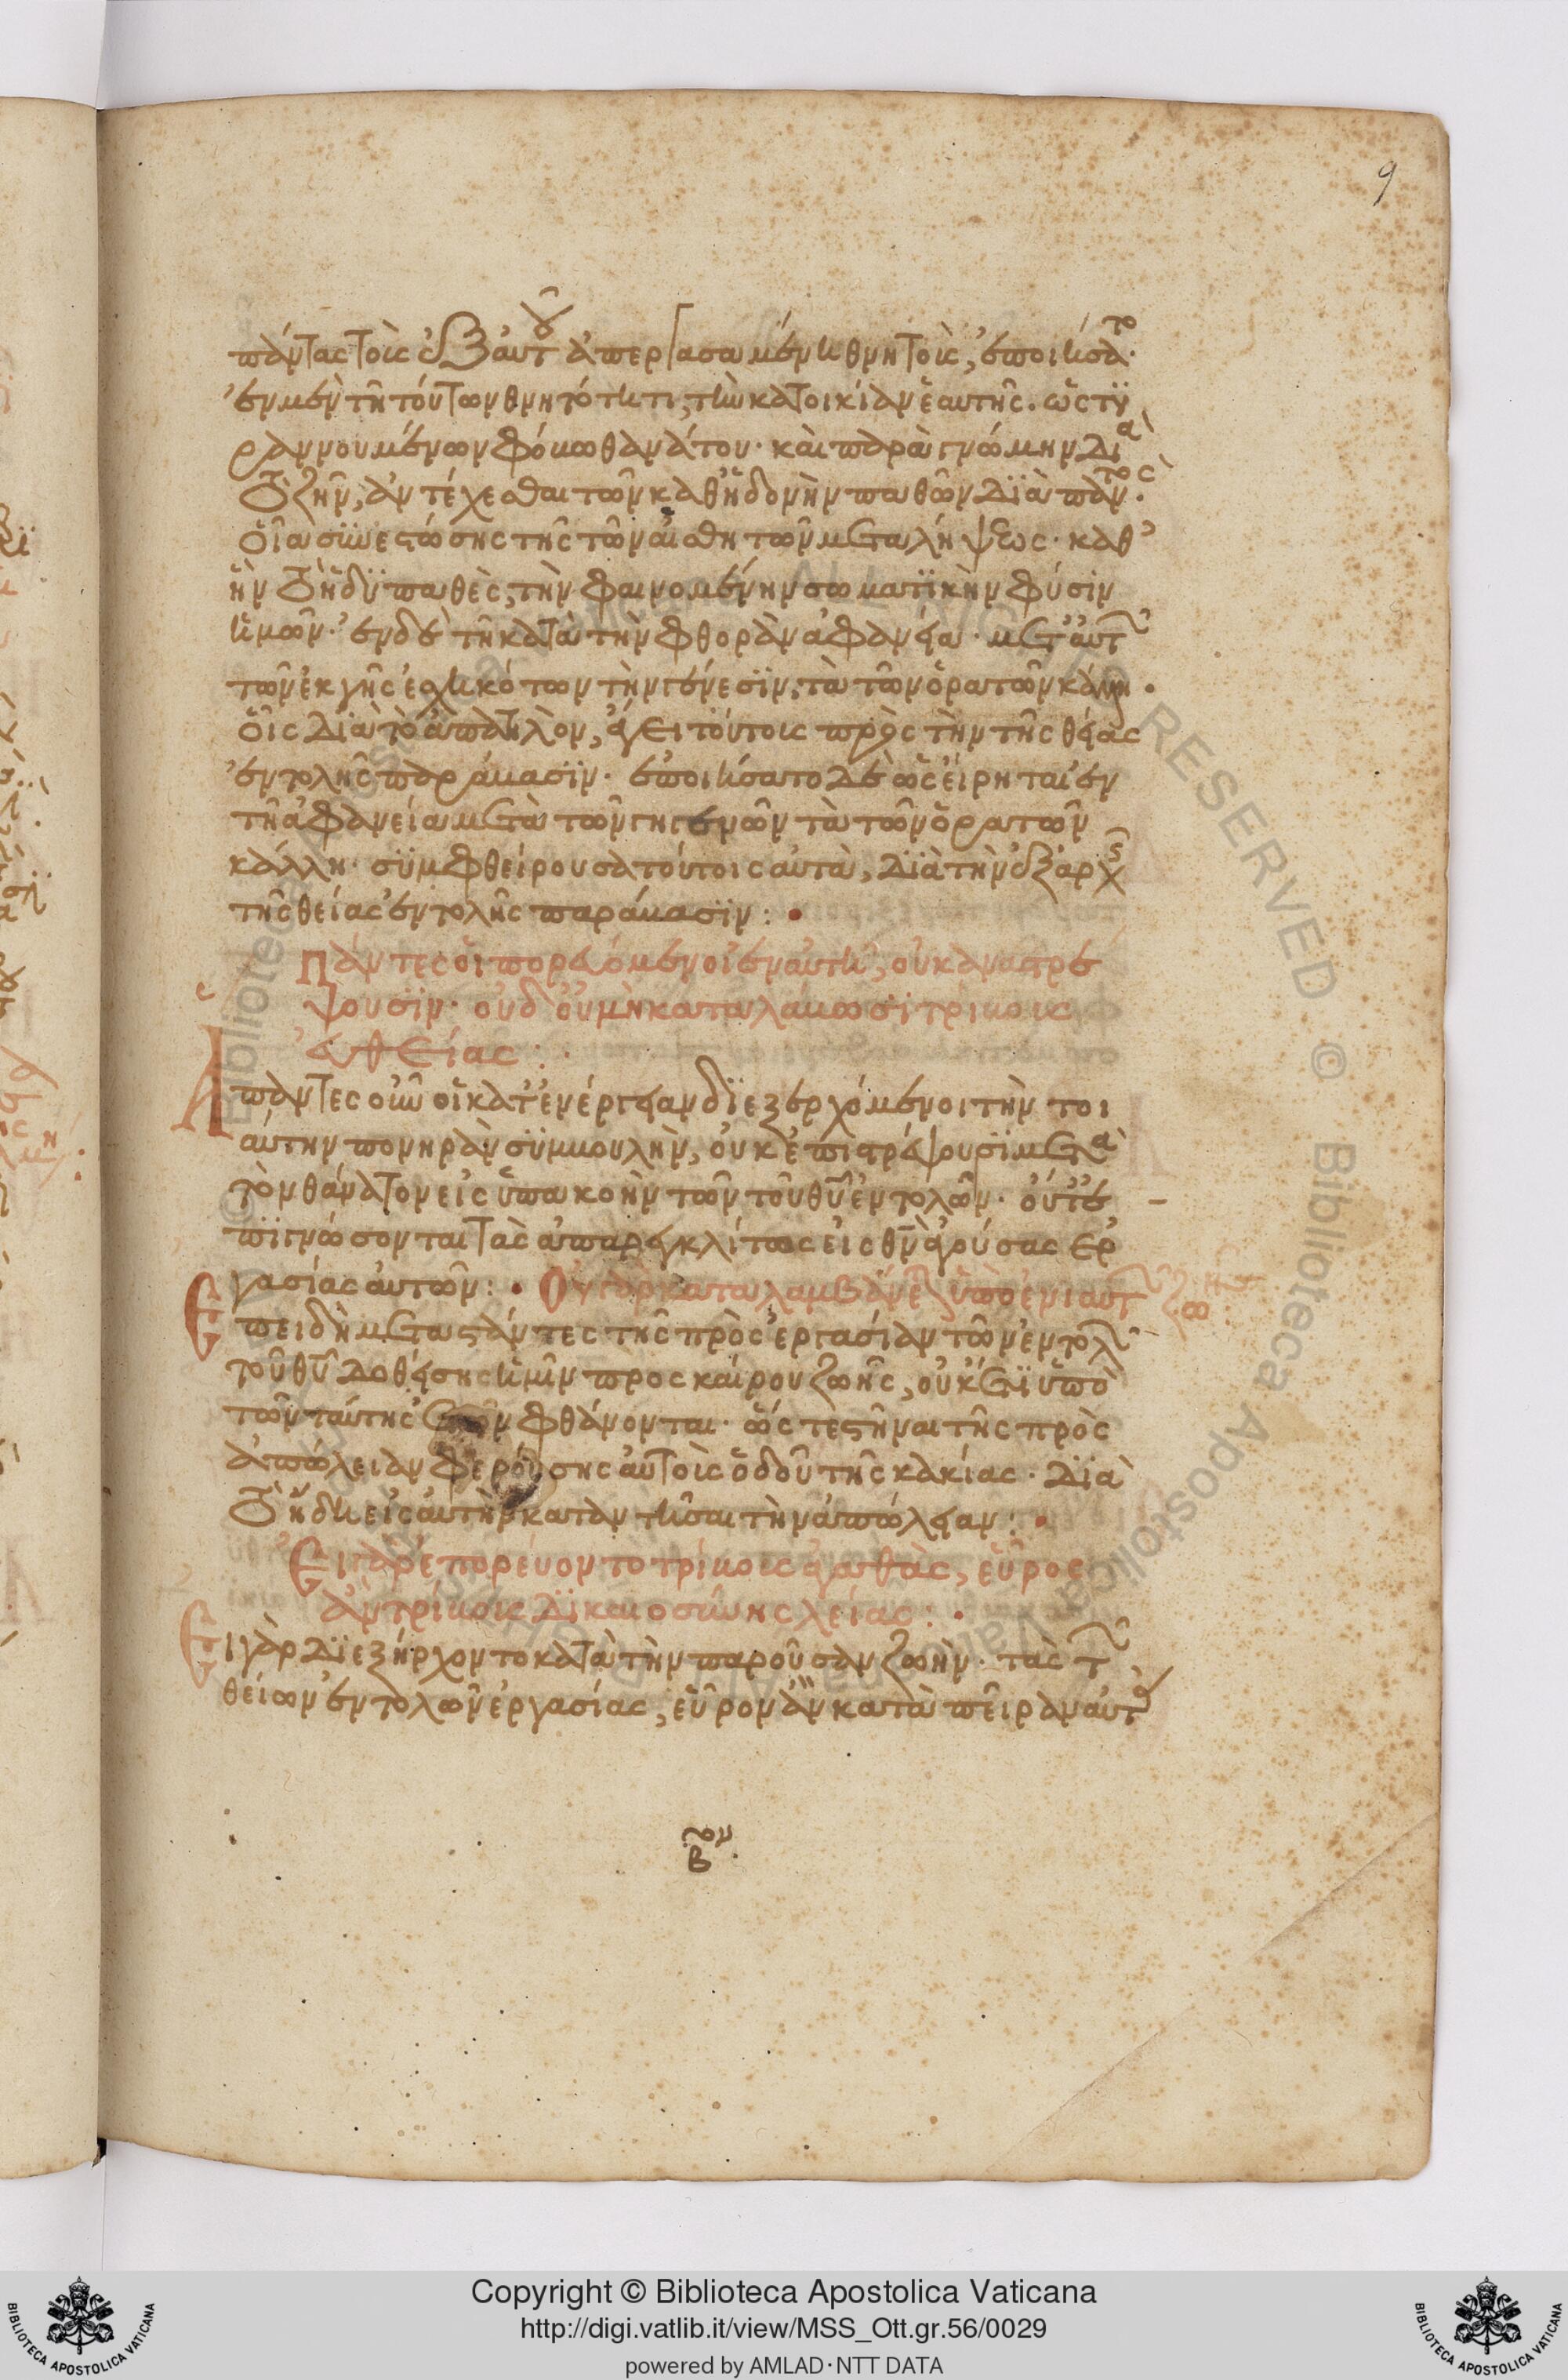 9
πάντας τοῖς ἐξ αὐτοῦ ἀπεργασαμένη θνητοῖς, ἐποιήσατο
ἐν μὲν τῆ τούτων θνητότητι, τὴν κατοικίαν ἑαυτῆς. ὡς τυ
ραννουμένων φόβω θανάτου· καὶ παρὰ γνώμην διὰ
τὸ ζῆν, ἀντέχεσθαι τῶν καθ' ἡδονὴν παθῶν διὰ παντὸς·
οἷα συνεστώσης τῆς τῶν αἰσθητῶν μεταλήψεως· καθ'
ἣν τὸ ἡδυπαθὲς, τὴν φαινομένην σωματικὴν φύσιν
ἡμῶν· ἐν δὲ τῆ κατὰ τὴν φθορὰν ἀφανεία· μετ' αὐτῶν
τῶν ἐκ γῆς ἐσχηκότων τὴν γένεσιν, τὰ τῶν ὁρατῶν κάλλη·
οἷς διὰ τὸ ἀπατηλὸν, εἴχει τούτοις πρὸς τὴν τῆς θείας
ἐντολῆς παράβασιν· ἐποιήσατο δὲ ὡς εἴρηται ἐν
τῆ ἀφανεία μετὰ τῶν γηγενῶν τὰ τῶν ὁρατῶν
κάλλη· συμφθείρουσα τούτοις αὐτὰ, διὰ τὴν ἐξαρχῆς
τῆς θείας ἐντολῆς παράβασιν:
Πάντες οἱ πορευόμενοι ἐν αὐτῆ, οὐκ αναστρέ
ψουσιν· οὐδ' οὐ μὴ καταλάβωσι τρίβοις
εὐθείας:
Ἅπαντες οὖν οἱ κατ' ἐνέργειαν διεξερχόμενοι τὴν τοι
αύτην πονηρὰν συμβουλὴν, οὐκ ἐπιστρέψουσι μετὰ
τὸν θάνατον εἰς ὑπακοὴν τῶν τοῦ θυ ἐντολῶν· οὔτε
πιγνώσονται τὰς ἀπαρεγκλίτως εἰς θν ἀγούσας ερ
γασίας αὐτῶν: Οὐ γὰρ καταλαμβάνει ὑπὸ ἐνιαυτῶν ζωῆς
Ἐπειδὴ μεταστάντες τῆς πρὸς ἐργασίαν τῶν ἐντολῶν
τοῦ θυ δοθείσης ἡμῖν προς καίρου ζωῆς, οὐκέτι ὑπὸ
τῶν ταύτης ἐτῶν φθάνονται· ὥς τε στῆναι τῆς πρὸς
ἀπώλειαν φερούσης αὐτοῖς ὁδοῦ τῆς κακίας· διὰ
τὸ ἤδη εἰς αὐτὴν καταντῆσαι τὴν ἀπώλειαν:
Εἰ γὰρ ἐπορεύοντο τρίβοις ἀγαθὰς, εὗρος
ἂν τρίβοις δικαιοσύνης λείας:
Εἰ γὰρ διεξήρχοντο κατὰ τὴν παροῦσαν ζωὴν· τὰς τῶν
θείων ἐντολῶν ἐργασίας, εὗρον ἂν κατὰ πεῖραν αὐτὰς
βον
Copyright © Biblioteca Apostolica Vaticana
http://digi.vatlib.it/view/MSS_Ott.gr.56/0029
powered by AMLAD·NTT DATA